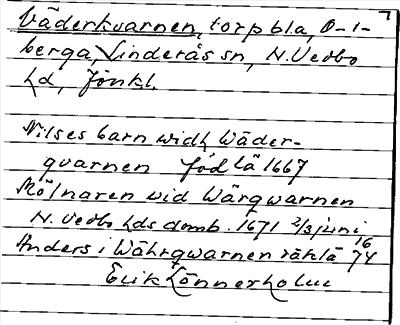 Väderkvarnen, torp bl.a, O-l-
berga, Linderås sn, N. Vedbo
hd, Jönk.l.
Nilses barn widh Wäder-
qvarnen född lä 1667
Mölnaren vid Wärqwarnen
N. Vedbo hds domb. 1671 2/3 juni
Anders i Währqwarnen räklä 16
74
Erik Lönnerholm